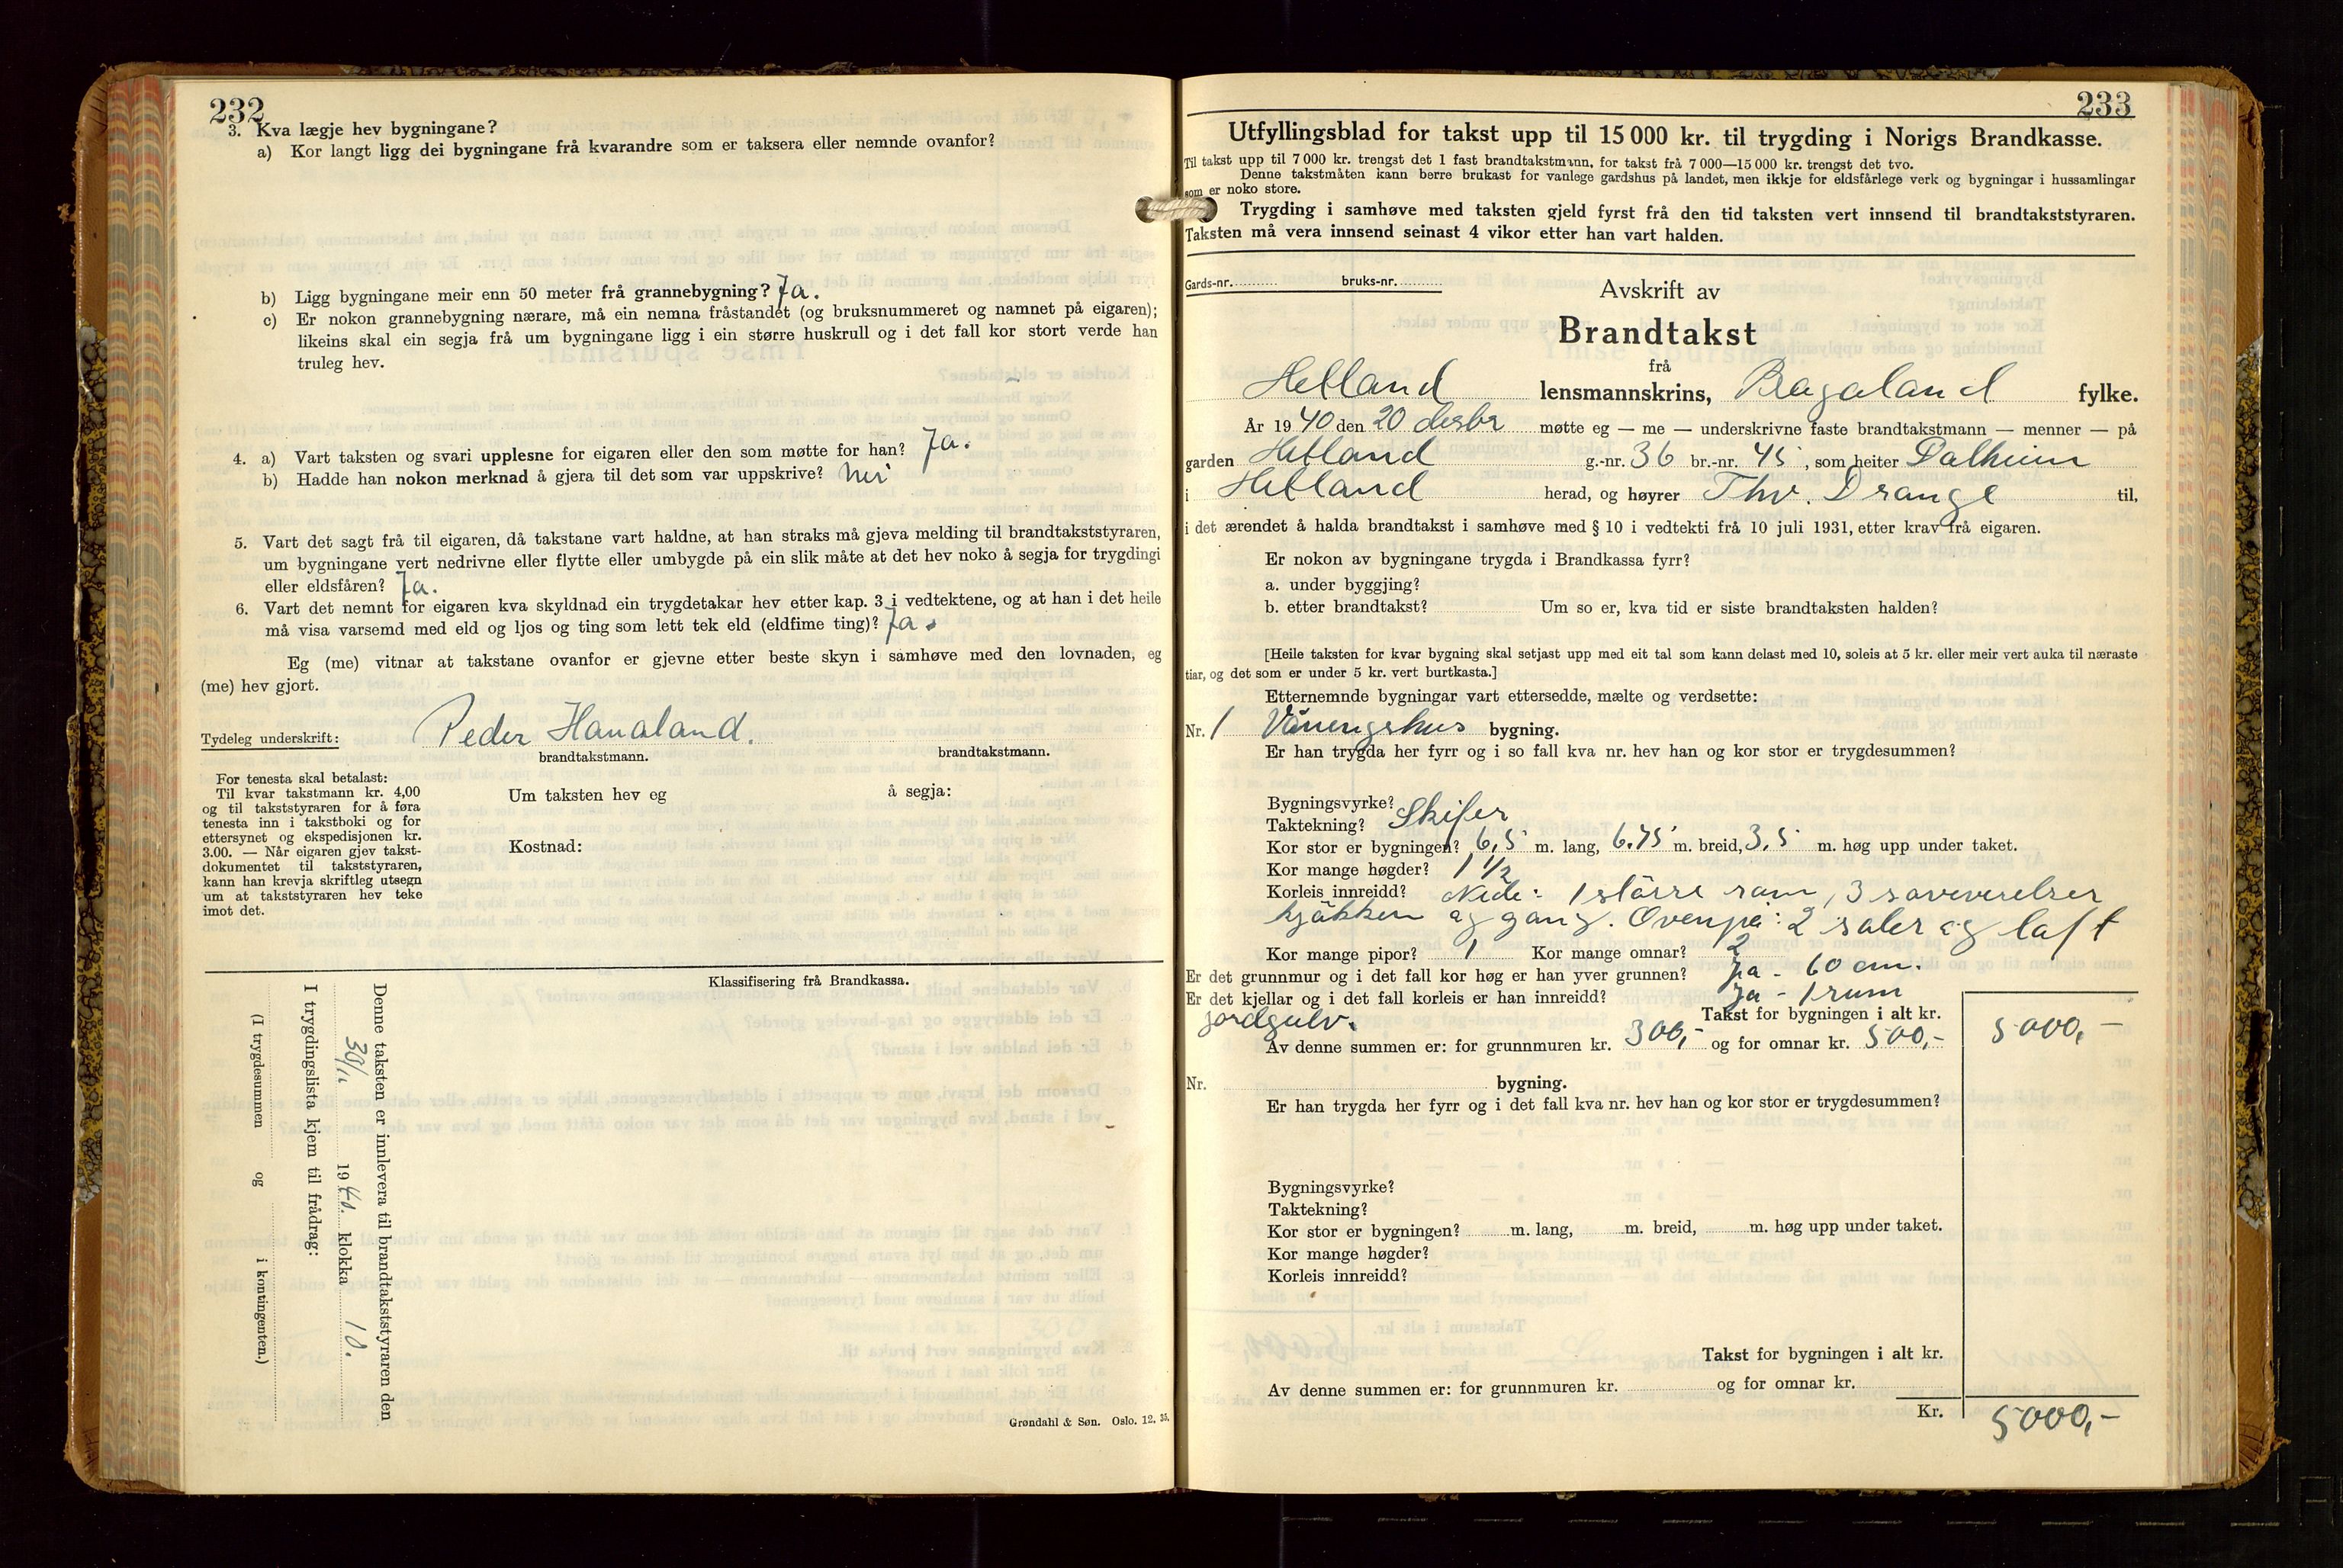 232
3. Kva lægje hev bygningane?
a) Kor langt ligg dei bygningane frå kvarandre som er taksera eller nemnde ovanfor?
b) Ligg bygningane meir enn 50 meter frå grannebygning? Ja.
c) Er nokon grannebygning nærare, må ein nemna fråstandet (og bruksnummeret og namnet på eigaren);
likeins skal ein segja frå um bygningane ligg i ein større huskrull og i det fall kor stort verde han
truleg hev.
4. a) Vart taksten og svari upplesne for eigaren eller den som møtte for han? Ja.
b) Hadde han nokon merknad å gjera til det som var uppskrive? Nei
5. Vart det sagt frå til eigaren, då takstane vart haldne, at han straks må gjeva melding til brandtakststyraren,
um bygningane vert nedrivne eller flytte eller umbygde på ein slik måte at det hev noko å segja for trygdingi
eller eldsfåren? Ja.
6. Vart det nemnt for eigaren kva skyldnad ein trygdetakar hev etter kap. 3 i vedtektene, og at han i det heile
må visa varsemd med eld og ljos og ting som lett tek eld (eldfime ting)? Ja.
Eg (me) vitnar at takstane ovanfor er gjevne etter beste skyn i samhøve med den lovnaden, eg
(me) hev gjort.
Tydeleg underskrift: Peder Hanaland.
brandtakstmann. brandtakstmann.
For tenesta skal betalast:
Til kvar takstmann kr. 4,00
og til takststyraren for å føra
tenesta inn i takstboki og for
ettersynet og ekspedisjonen kr.
3.00. — Når eigaren gjev takst-
dokumentet til takststyraren,
kann han krevja skriftleg utsegn
um at takststyraren hev teke
imot det.
Um taksten hev eg å segja:
Kostnad:
Klassifisering frå Brandkassa.
Denne taksten er innlevera til brandtakststyraren den
30/12 1940. klokka 10.
I trygdingslista kjem til frådrag:
(I trygdesummen og i kontingenten.)
Grøndahl & Søn. Oslo. 12. 35.
233
Utfyllingsblad for takst upp til 15 000 kr. til trygding i Norigs Brandkasse.
Til takst upp til 7 000 kr. trengst det 1 fast brandtakstmann, for takst frå 7 000—15 000 kr. trengst det tvo.
Denne takstmåten kann berre brukast for vanlege gardshus på landet, men ikkje for eldsfårlege verk og bygningar i hussamlingar
som er noko store.
Trygding i samhøve med taksten gjeld fyrst frå den tid taksten vert innsend til brandtakststyraren.
Taksten må vera innsend seinast 4 vikor etter han vart halden.
Gards-nr. bruks-nr.
Avskrift av
Brandtakst
frå
Hetland lensmannskrins, Rogaland fylke.
År 1940 den 20 desbr møtte eg — me — underskrivne faste brandtakstmann — menner — på
garden Hetland g.-nr. 36 br.-nr. 45, som heiter Dalheim
i Hetland herad, og høyrer Thv. Drange til,
i det ærendet å halda brandtakst i samhøve med § 10 i vedtekti frå 10 juli 1931, etter krav frå eigaren.
Er nokon av bygningane trygda i Brandkassa fyrr?
a. under byggjing?
b. etter brandtakst? Um so er, kva tid er siste brandtaksten halden?
[Heile taksten for kvar bygning skal setjast upp med eit tal som kann delast med 10, soleis at 5 kr. eller meir vert auka til næraste
tiar, og det som er under 5 kr. vert burtkasta.]
Etternemnde bygningar vart ettersedde, mælte og verdsette:
Nr. 1 Våningshus bygning.
Er han trygda her fyrr og i so fall kva nr. hev han og kor stor er trygdesummen?
Bygningsvyrke?
Taktekning? Skifer
Kor stor er bygningen? 6,5 m. lang, 6.75 m. breid, 3,5 m. høg upp under taket.
Kor mange høgder? 1 1/2
Korleis innreidd? Nede: 1 større rom, 3 soveverelser
kjøkken og gang. Ovenpå: 2 saler og loft
Kor mange pipor? 1 Kor mange omnar? 2
Er det grunnmur og i det fall kor høg er han yver grunnen? Ja - 60 cm.
Er det kjellar og i det fall korleis er han innreidd? Ja - 1 rum
jordgulv.
Takst for bygningen i alt kr. 5000,-
Av denne summen er: for grunnmuren kr. 300,- og for omnar kr. 500,-
Nr. bygning.
Er han trygda her fyrr og i det fall kva nr. hev han og kor stor er trygdesummen?
Bygningsvyrke?
Taktekning?
Kor stor er bygningen? m. lang, m. breid, m. høg upp under taket.
Kor mange høgder?
Korleis innreidd?
Takst for bygningen i alt kr.
Av denne summen er: for grunnmuren kr. og for omnar kr.
Kr. 5000,-